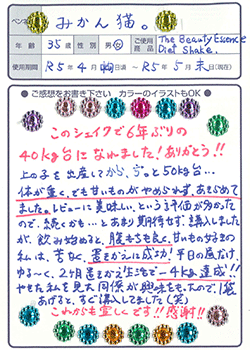 ペンネ みかん猫。
年齢 35歳 性別 男・女 ご使用商品 The Beauty Essence Diet Shake.
使用期間 R5年4月 日頃 ～ R5年5月末日(現在)
●ご感想をお書き下さい カラーのイラストもOK●
このシェイクで6年ぶりの
40kg台になれました!ありがとう!!
上の子を出産してから、ずっと50kg台…
体が重く、でも甘いものがやめられず、あきらめて
ました。レビューに美味しい、という評価が多かった
ので、続くかも…とあまり期待せず、購入しました
が、飲み始めると、腹もちも良く、甘いもの好きの
私は、苦なく、置きかえに成功!平日の昼だけ、
ゆる～く、2ヶ月置きかえ生活で－4kg達成!!
やせた私を見た同僚が興味をもったので、1袋
あげると、すぐ購入してました(笑)
これからも宜しくです!!感謝!!